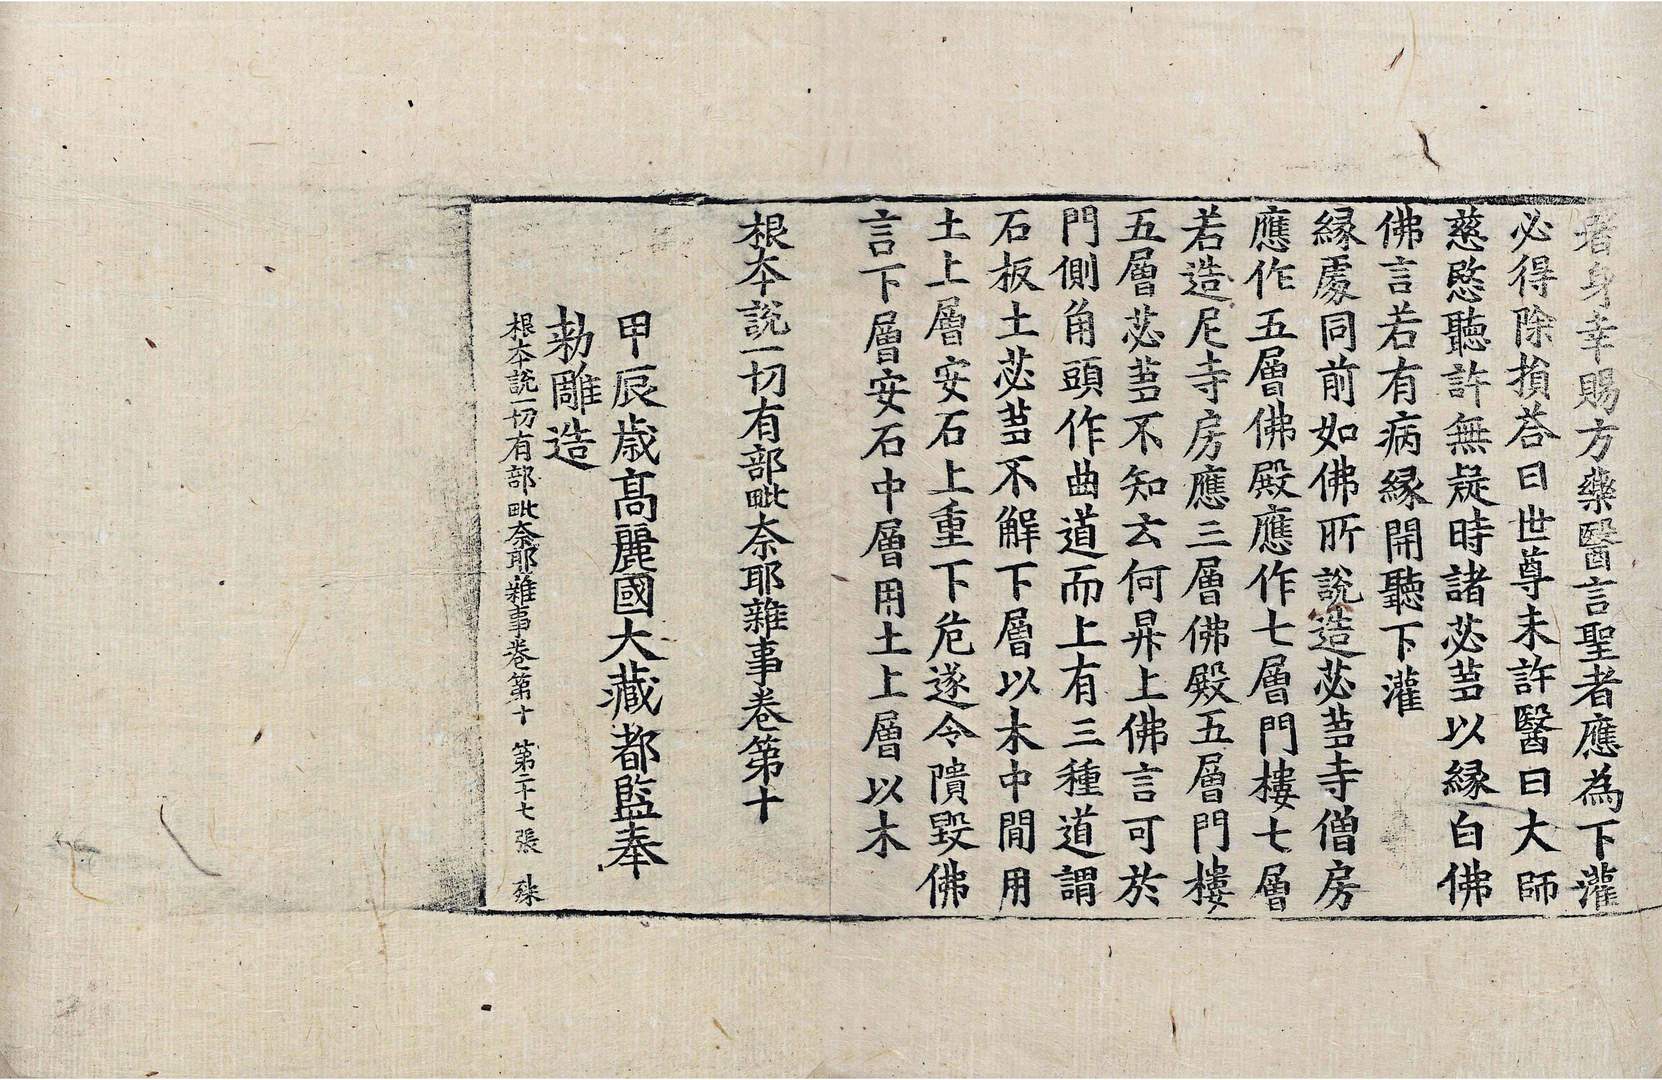 者身幸賜方藥醫言聖者應為下灌
必得除損荅曰世尊未許醫曰大師
慈愍聽許無疑時諸苾芻以縁白佛
佛言若有病縁開聽下灌
縁處同前如佛所說造苾芻寺僧房
應作五層佛殿應作七層門樓七層
若造尼寺房應三層佛殿五層門樓
五層苾芻不知云何昇上佛言可於
門側角頭作曲道而上有三種道謂
石板土苾芻不解下層以木中間用
土上層安石上重下危遂令隤毀佛
言下層安石中層用土上層以木
根本說一切有部毗奈耶雜事卷第十
甲辰歲高麗國大藏都監奉
勑雕造
根本說一切有部毗奈耶雜事卷第十 第二十七張 殊